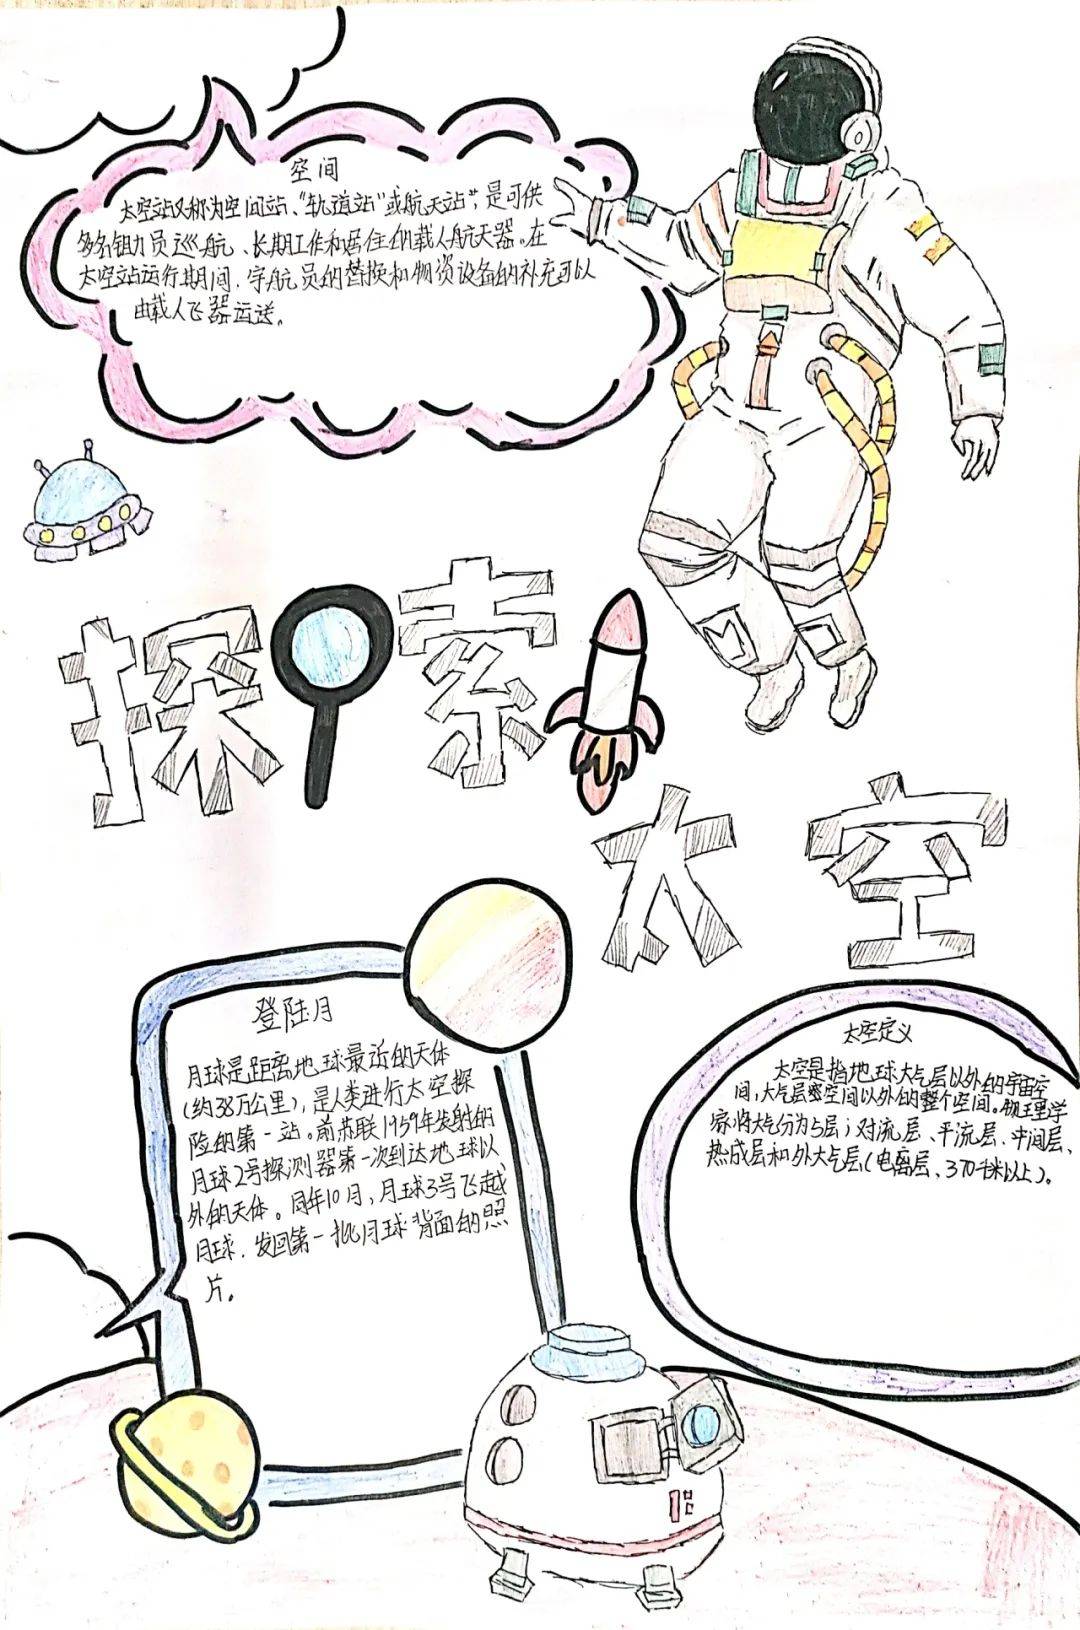 空间
太空站又称为空间站、"轨道站"或航天站",是可供
多名组力员巡航、长期工作和居住的载人航天器。在
太空站运行期间,宇航员的替换和物资设备的补充可以
由载人飞器运送。
探索
太空
登陆月
月球是距离地球最近的天体
(约38万公里),是人类进行太空探
险的第一站。前苏联1959年发射的
月球2号探测器第一次到达地球以
外的天体。同年10月,月球3号飞越
月球,发回第一批月球背面的照
片。
太空定义
太空是指地球大气层以外的宇宙空
间,大气层空间以外的整个空间。物理学
家将大气分为5层;对流层、平流层、中间层、
热成层和外大气层(电离层、370千米以上)。